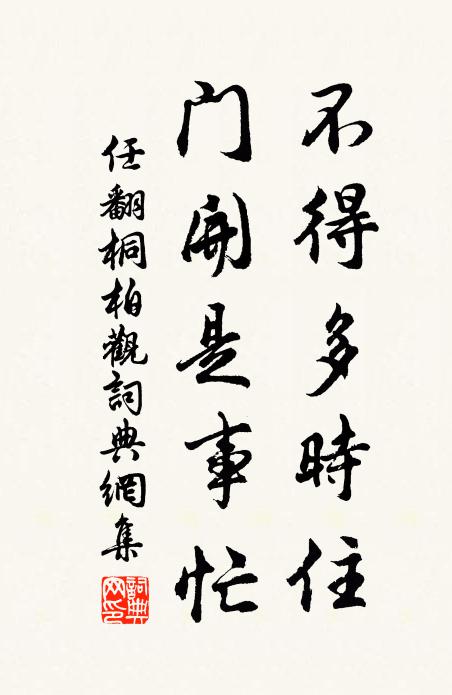 不得多時住
门開是事忙
任翻桐柏觀詞典網集
詞典網印